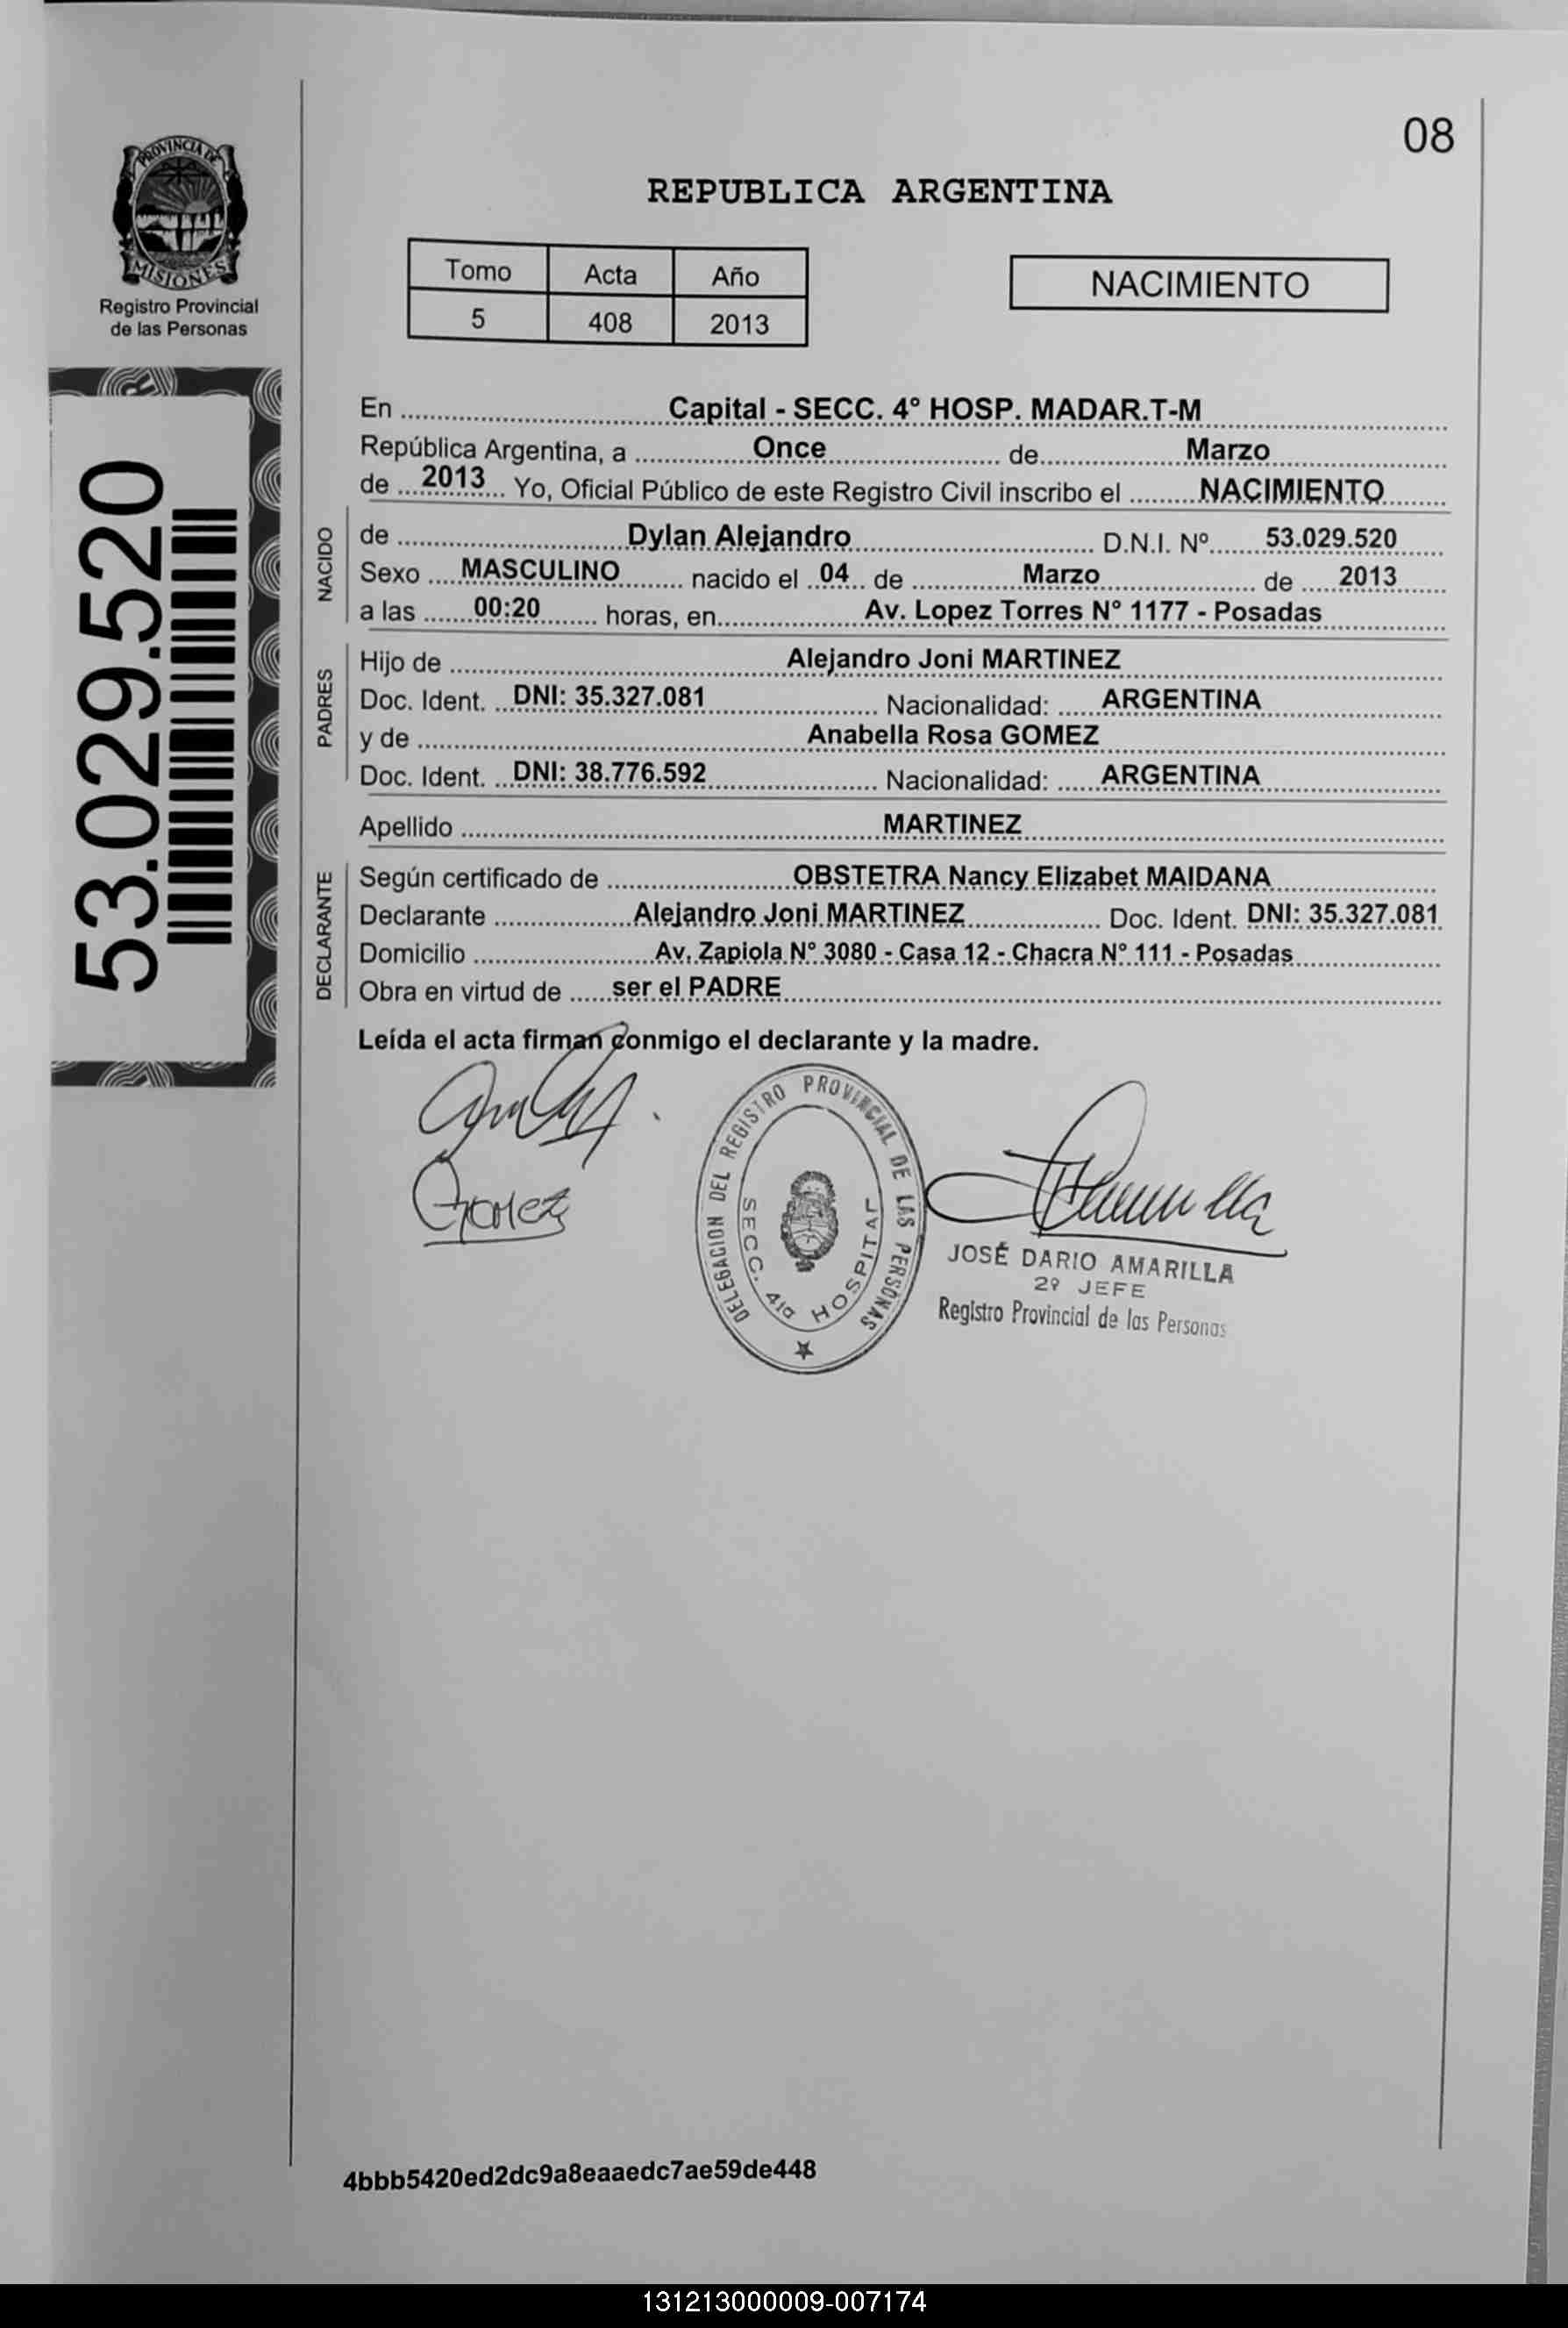 08
PROVINCIA DE
MISIONES
Registro Provincial
de las Personas
REPUBLICA ARGENTINA
Tomo Acta Año
5 408 2013
NACIMIENTO
53.029.520
En ........ Capital - SECC. 4° HOSP. MADAR.T-M
República Argentina, a ........ Once ........ de ........ Marzo
de ... 2013 ... Yo, Oficial Público de este Registro Civil inscribo el ........ NACIMIENTO
NACIDO
de ........ Dylan Alejandro ........ D.N.I. Nº ...... 53.029.520
Sexo ..... MASCULINO ........ nacido el .. 04 .. de ........ Marzo ........ de ..... 2013
a las ...... 00:20 ....... horas, en ........ Av. Lopez Torres N° 1177 - Posadas
PADRES
Hijo de ........ Alejandro Joni MARTINEZ
Doc. Ident. .. DNI: 35.327.081 ........ Nacionalidad: ...... ARGENTINA
y de ........ Anabella Rosa GOMEZ
Doc. Ident. .. DNI: 38.776.592 ........ Nacionalidad: ...... ARGENTINA
Apellido ........ MARTINEZ
DECLARANTE
Según certificado de ........ OBSTETRA Nancy Elizabet MAIDANA
Declarante ........ Alejandro Joni MARTINEZ ........ Doc. Ident. DNI: 35.327.081
Domicilio ........ Av. Zapiola N° 3080 - Casa 12 - Chacra N° 111 - Posadas
Obra en virtud de ...... ser el PADRE
Leída el acta firman conmigo el declarante y la madre.
Gomez
DELEGACION DEL REGISTRO PROVINCIAL DE LAS PERSONAS
SECC. 4ta HOSPITAL
JOSÉ DARIO AMARILLA
2º JEFE
Registro Provincial de las Personas
4bbb5420ed2dc9a8eaaedc7ae59de448
131213000009-007174